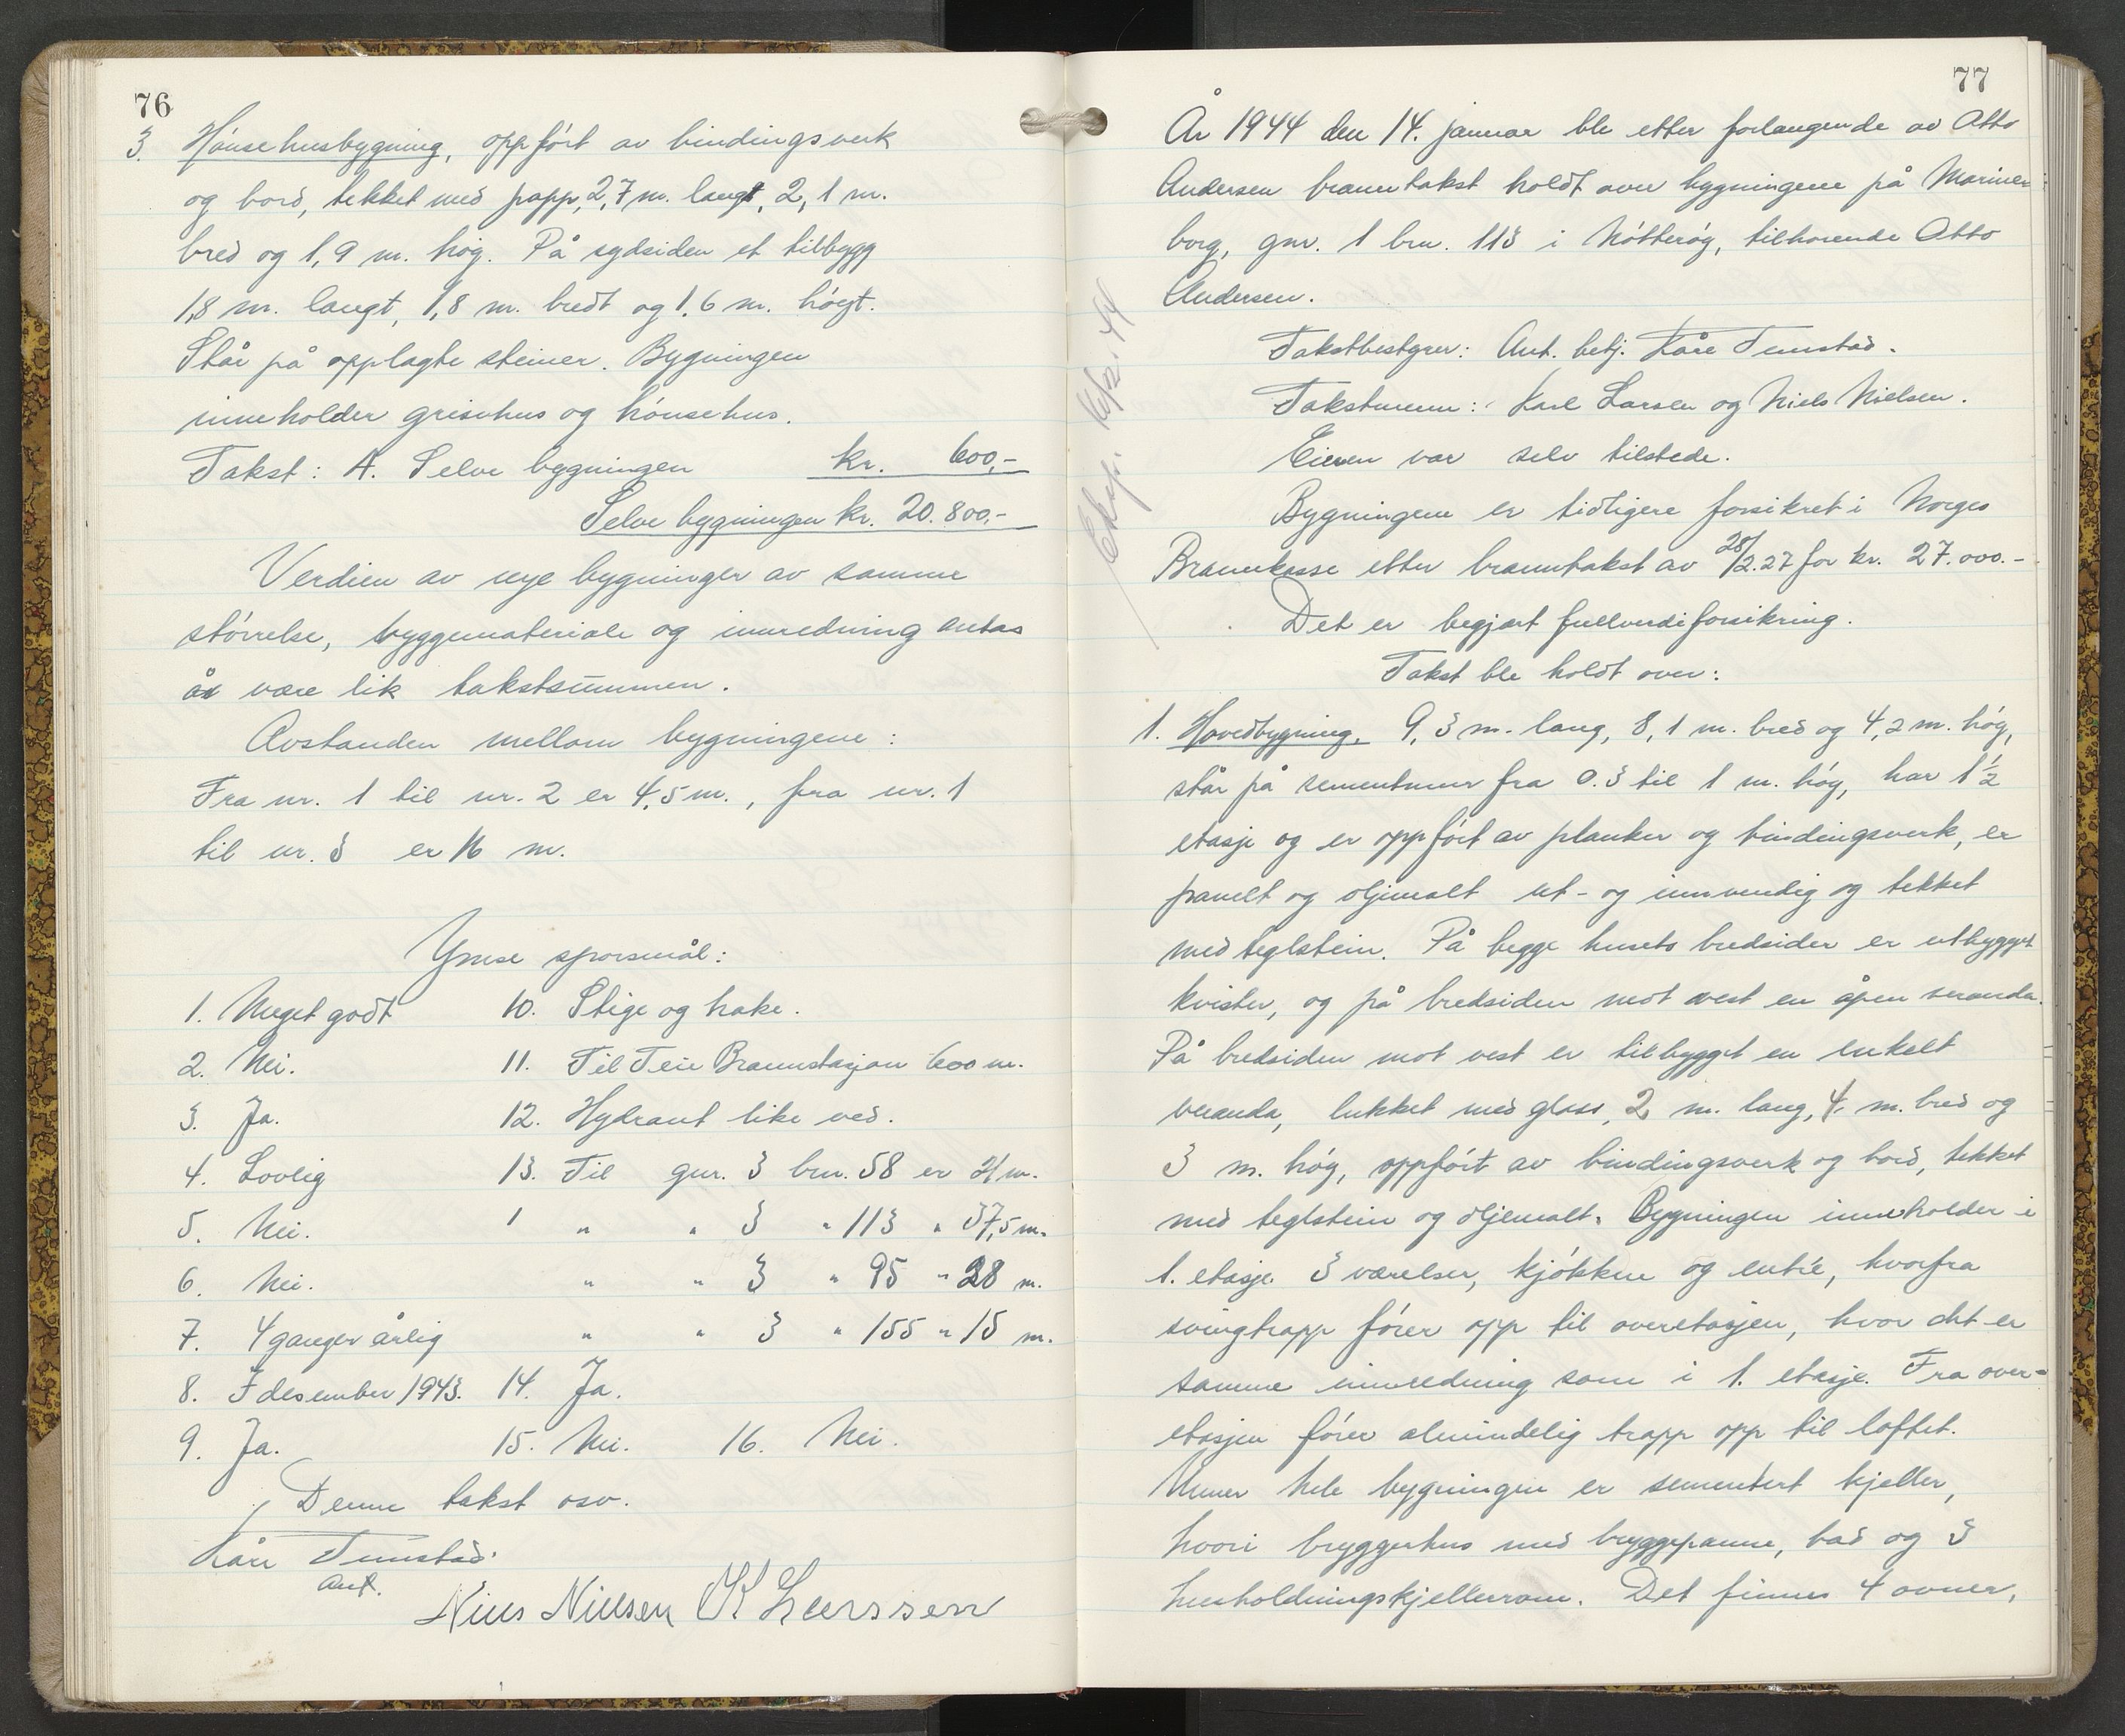 76
3. Hönsehusbygning, oppfört av bindingsverk
og bord, tekket med papp, 2,7 m. langt, 2,1 m.
bred og 1,9 m. høg. På sydsiden et tilbygg
1,8 m. langt, 1,8 m. bredt og 1,6 m. högt.
Står på opplagte steiner. Bygningen
inneholder grisehus og hönsehus.
Takst: A. Selve bygningen kr. 600,-
Selve bygningen kr. 20.800,-
Verdien av nye bygninger av samme
störrelse, byggemateriale og innredning antas
å være lik takstsummen.
Avstanden mellom bygningene:
Fra nr. 1 til nr. 2 er 4,5 m., fra nr. 1
til nr. 3 er 16 m.
Ymse spørsmål:
1. Meget godt 10. Stige og hake.
2. Nei. 11. Til Teie Brannstasjon 600 m.
3. Ja. 12. Hydrant like ved.
4. Lovlig 13. Til gnr. 3 brn. 58 er 21 m.
5. Nei. " " 3 " 113 " 37,5 m.
6. Nei. " " 3 " 95 " 28 m.
7. 4 ganger årlig " " 3 " 155 " 15 m.
8. I desember 1943. 14. Ja.
9. Ja. 15. Nei. 16. Nei.
Denne takst osv.
Kåre Tunstad.
Ant.
Niels Nielsen K Larssen
77
År 1944 den 14. januar ble etter forlangende av Otto
Andersen branntakst holdt over bygningene på Marien-
borg, gnr. 1 brn. 113 i Nötteröy, tilhørende Otto
Andersen.
Takstbestyrer: Ant. betj. Kåre Tunstad.
Takstmenn: Karl Larsen og Niels Nielsen.
Eieren var selv tilstede.
Bygningene er tidligere forsikret i Norges
Brannkasse etter branntakst av 28/2.27 for kr. 27.000.-
Det er begjært fullverdiforsikring.
Takst ble holdt over:
1. Hovedbygning, 9,3 m. lang, 8,1 m. bred og 4,2 m. hög,
står på sementmur fra 0.3 til 1 m. hög, har 1½
etasje og er oppfört av planker og bindingsverk, er
panelt og oljemalt ut- og innvendig og tekket
med teglstein. På begge husets bredsider er utbygget
kvister, og på bredsiden mot vest en åpen veranda.
På bredsiden mot vest er tilbygget en enkelt
veranda, lukket med glass, 2 m. lang, 4 m. bred og
3 m. hög, oppfört av bindingsverk og bord, tekket
med teglstein og oljemalt. Bygningen inneholder i
1. etasje 3 værelser, kjökken og entré, hvorfra
svingtrapp förer opp til overetasjen, hvor det er
samme innredning som i 1. etasje. Fra over-
etasjen förer almindelig trapp opp til loftet.
Under hele bygningen er sementert kjeller,
hvori bryggerhus med bryggepanne, bad og 3
husholdningskjellerrom. Det finnes 4 ovner,